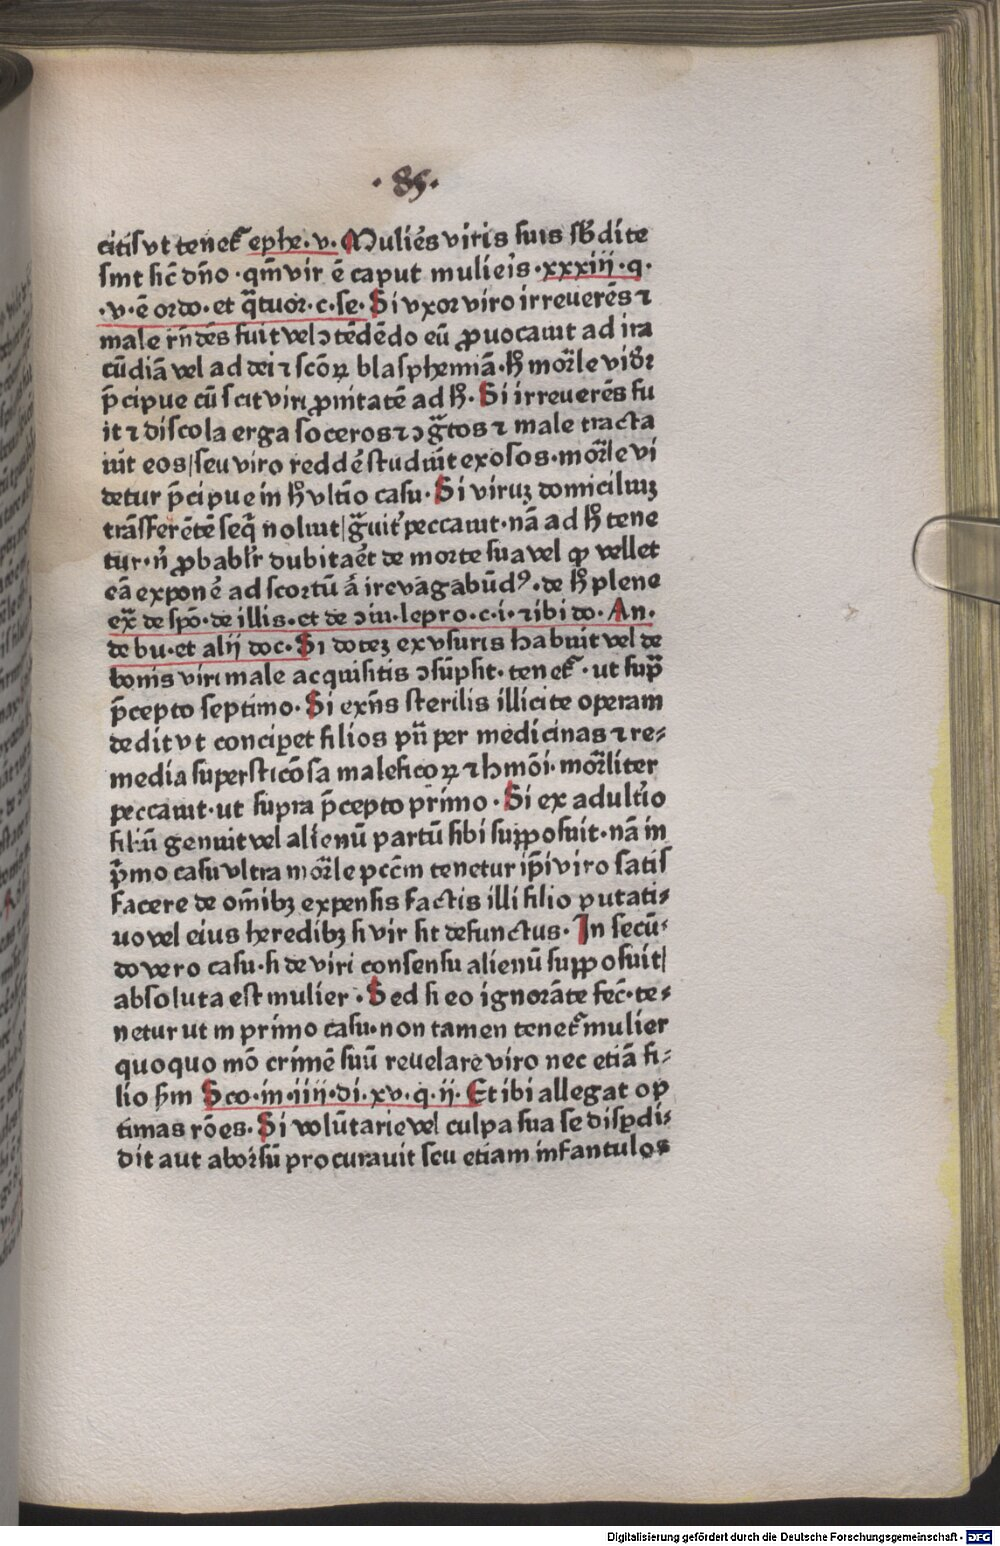 · 85 ·
citis vt teneť ephe · v · Muliēs viris suis sƀdite
sint sič dño · qm̄ vir ē caput mulieīs · xxxiij · q ·
· v · ē ordo · et q̄tuor · c · se · Si vxor viro irreuerēs ⁊
male rñdēs fuit vel ↄtēdēdo eū ꝓuocauit ad ira
cūdiā vel ad dei ⁊ scōꝝ blasphemiā · ħ mor̄le vidr̄
p̄cipue cū scit viri ꝓnitatē ad ħ · Si irreuerēs fu
it ⁊ discola erga soceros ⁊ ↄg̃tos ⁊ male tracta
uit eos / seu viro reddē studuit exosos · mor̄le vi
detur p̄cipue in ħ vltīo casu · Si viruꝫ domiciliuꝫ
trāsferētē seq̄ noluit / g̃uit᷑ peccauit · nā ad ħ tene
tur · ñ ꝓbabłr dubitaēt de morte sua vel ꝙ vellet
eā exponē ad scortū á ire vagabūdꝰ · de ħ plene
ex̄ de spō · de illis · et de ↄiu · lepro · c · i · ⁊ ibi do · An ·
de bu · et alij doc · Si doteꝫ ex vsuris habuit vel de
bonis viri male acquisitis ↄsūpsit · teneť · ut sup̄
p̄cepto septimo · Si exñs sterilis illicite operam
dedit vt conciperet filios pū per medicinas ⁊ re⸗
media superstičōsa maleficoꝝ ⁊ hmōi · mor̄liter
peccauit · ut supra p̄cepto primo · Si ex adultīo
filiū genuit vel alienū partū sibi supposuit · nā in
p̄mo casu vltra mor̄le pccm̄ tenetur ip̄i viro satis
facere de om̄ibꝫ expensis factis illi filio putati⸗
uo vel eius heredibꝫ si vir sit defunctus · In secū⸗
do vero casu · si de viri consensu alienū supposuit /
absoluta est mulier · Sed si eo ignorāte fec̄ · te⸗
netur ut in primo casu · non tamen teneť mulier
quoquo mō crimē suū reuelare viro nec etiā fi⸗
lio ẜm Sco · in · iiij · di · xv · q · ij · Et ibi allegat op
timas rōes · Si volūtarie vel culpa sua se disp̱di⸗
dit aut aborsū procurauit seu etiam infantulos
Digitalisierung gefördert durch die Deutsche Forschungsgemeinschaft - DFG